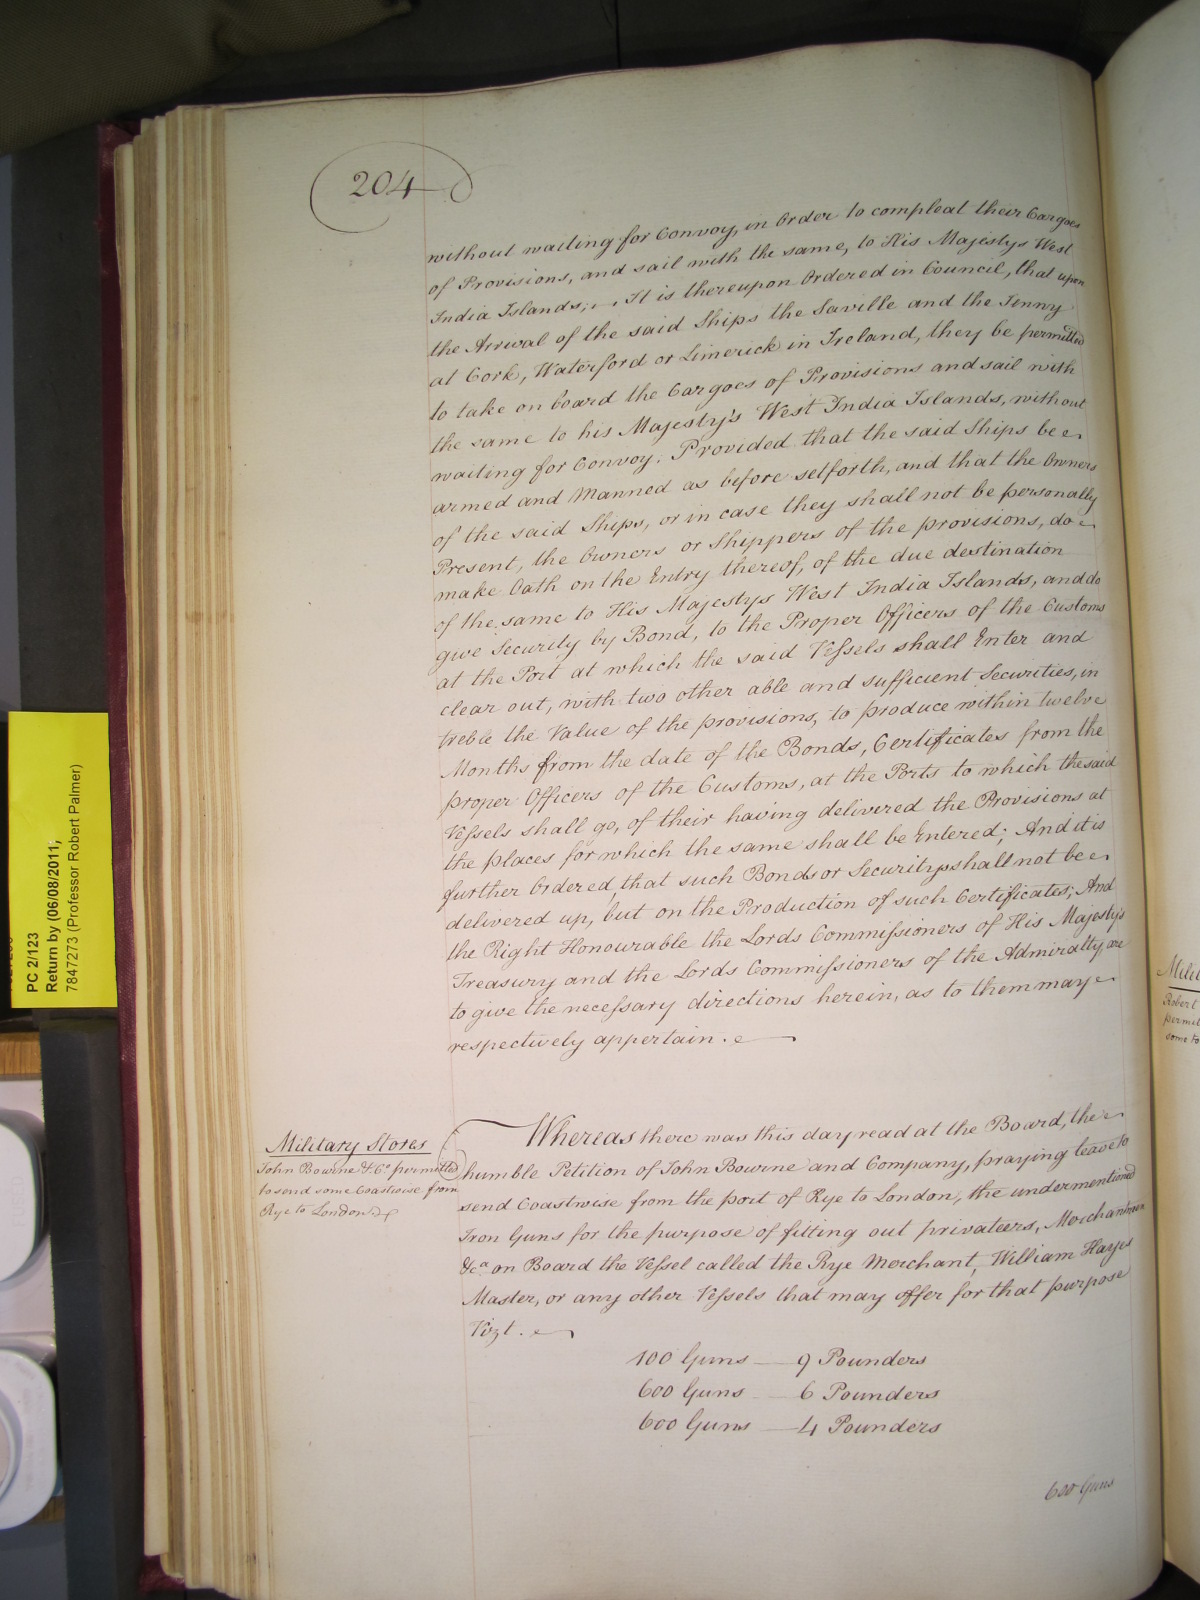 204
without waiting for Convoy, in Order to compleat their Cargoes
of Provisions, and sail with the same, to His Majestys West
India Islands; It is thereupon Ordered in Council, that upon
the Arrival of the said Ships the Saville and the Jenny
at Cork, Waterford or Limerick in Ireland, they be permitted
to take on board the Cargoes of Provisions and sail with
the same to his Majesty's West India Islands, without
waiting for Convoy. Provided that the said Ships be
armed and Manned as before setforth, and that the Owners
of the said Ships, or in case they shall not be personally
Present, the Owners or Shippers of the provisions, do
make Oath on the Entry thereof, of the due destination
of the same to His Majestys West India Islands, and do
give Security by Bond, to the Proper Officers of the Customs
at the Port at which the said Vessels shall Enter and
clear out, with two other able and sufficient Securities, in
treble the Value of the provisions, to produce within twelve
Months from the date of the Bonds, Certificates from the
proper Officers of the Customs, at the Ports to which the said
Vessels shall go, of their having delivered the Provisions at
the places for which the same shall be Entered; And it is
further Ordered, that such Bonds or Securitys shall not be
delivered up, but on the Production of such Certificates; And
the Right Honourable the Lords Commissioners of His Majesty's
Treasury and the Lords Commissioners of the Admiralty, are
to give the necessary directions herein, as to them may
respectively appertain.
Military Stores
John Bourne & Co. permitted
to send some Coastwise from
Rye to London
Whereas there was this day read at the Board, the
humble Petition of John Bourne and Company, praying leave to
send Coastwise from the port of Rye to London, the undermentioned
Iron Guns for the purpose of fitting out privateers, Merchantmen
&ca. on Board the Vessel called the Rye Merchant, William Hayes
Master, or any other Vessels that may offer for that purpose
Vizt.
100 Guns — 9 Pounders
600 Guns — 6 Pounders
600 Guns — 4 Pounders
600 Guns
PC 2/123
Return by (06/08/2011;
7847273 (Professor Robert Palmer)
Robert
some to